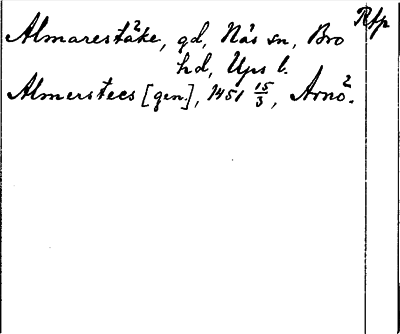 Rfp
Almarestäke, gd, Näs sn, Bro
hd, Ups l.
Almerstecs [gen.], 1451 15/3, Arnö.